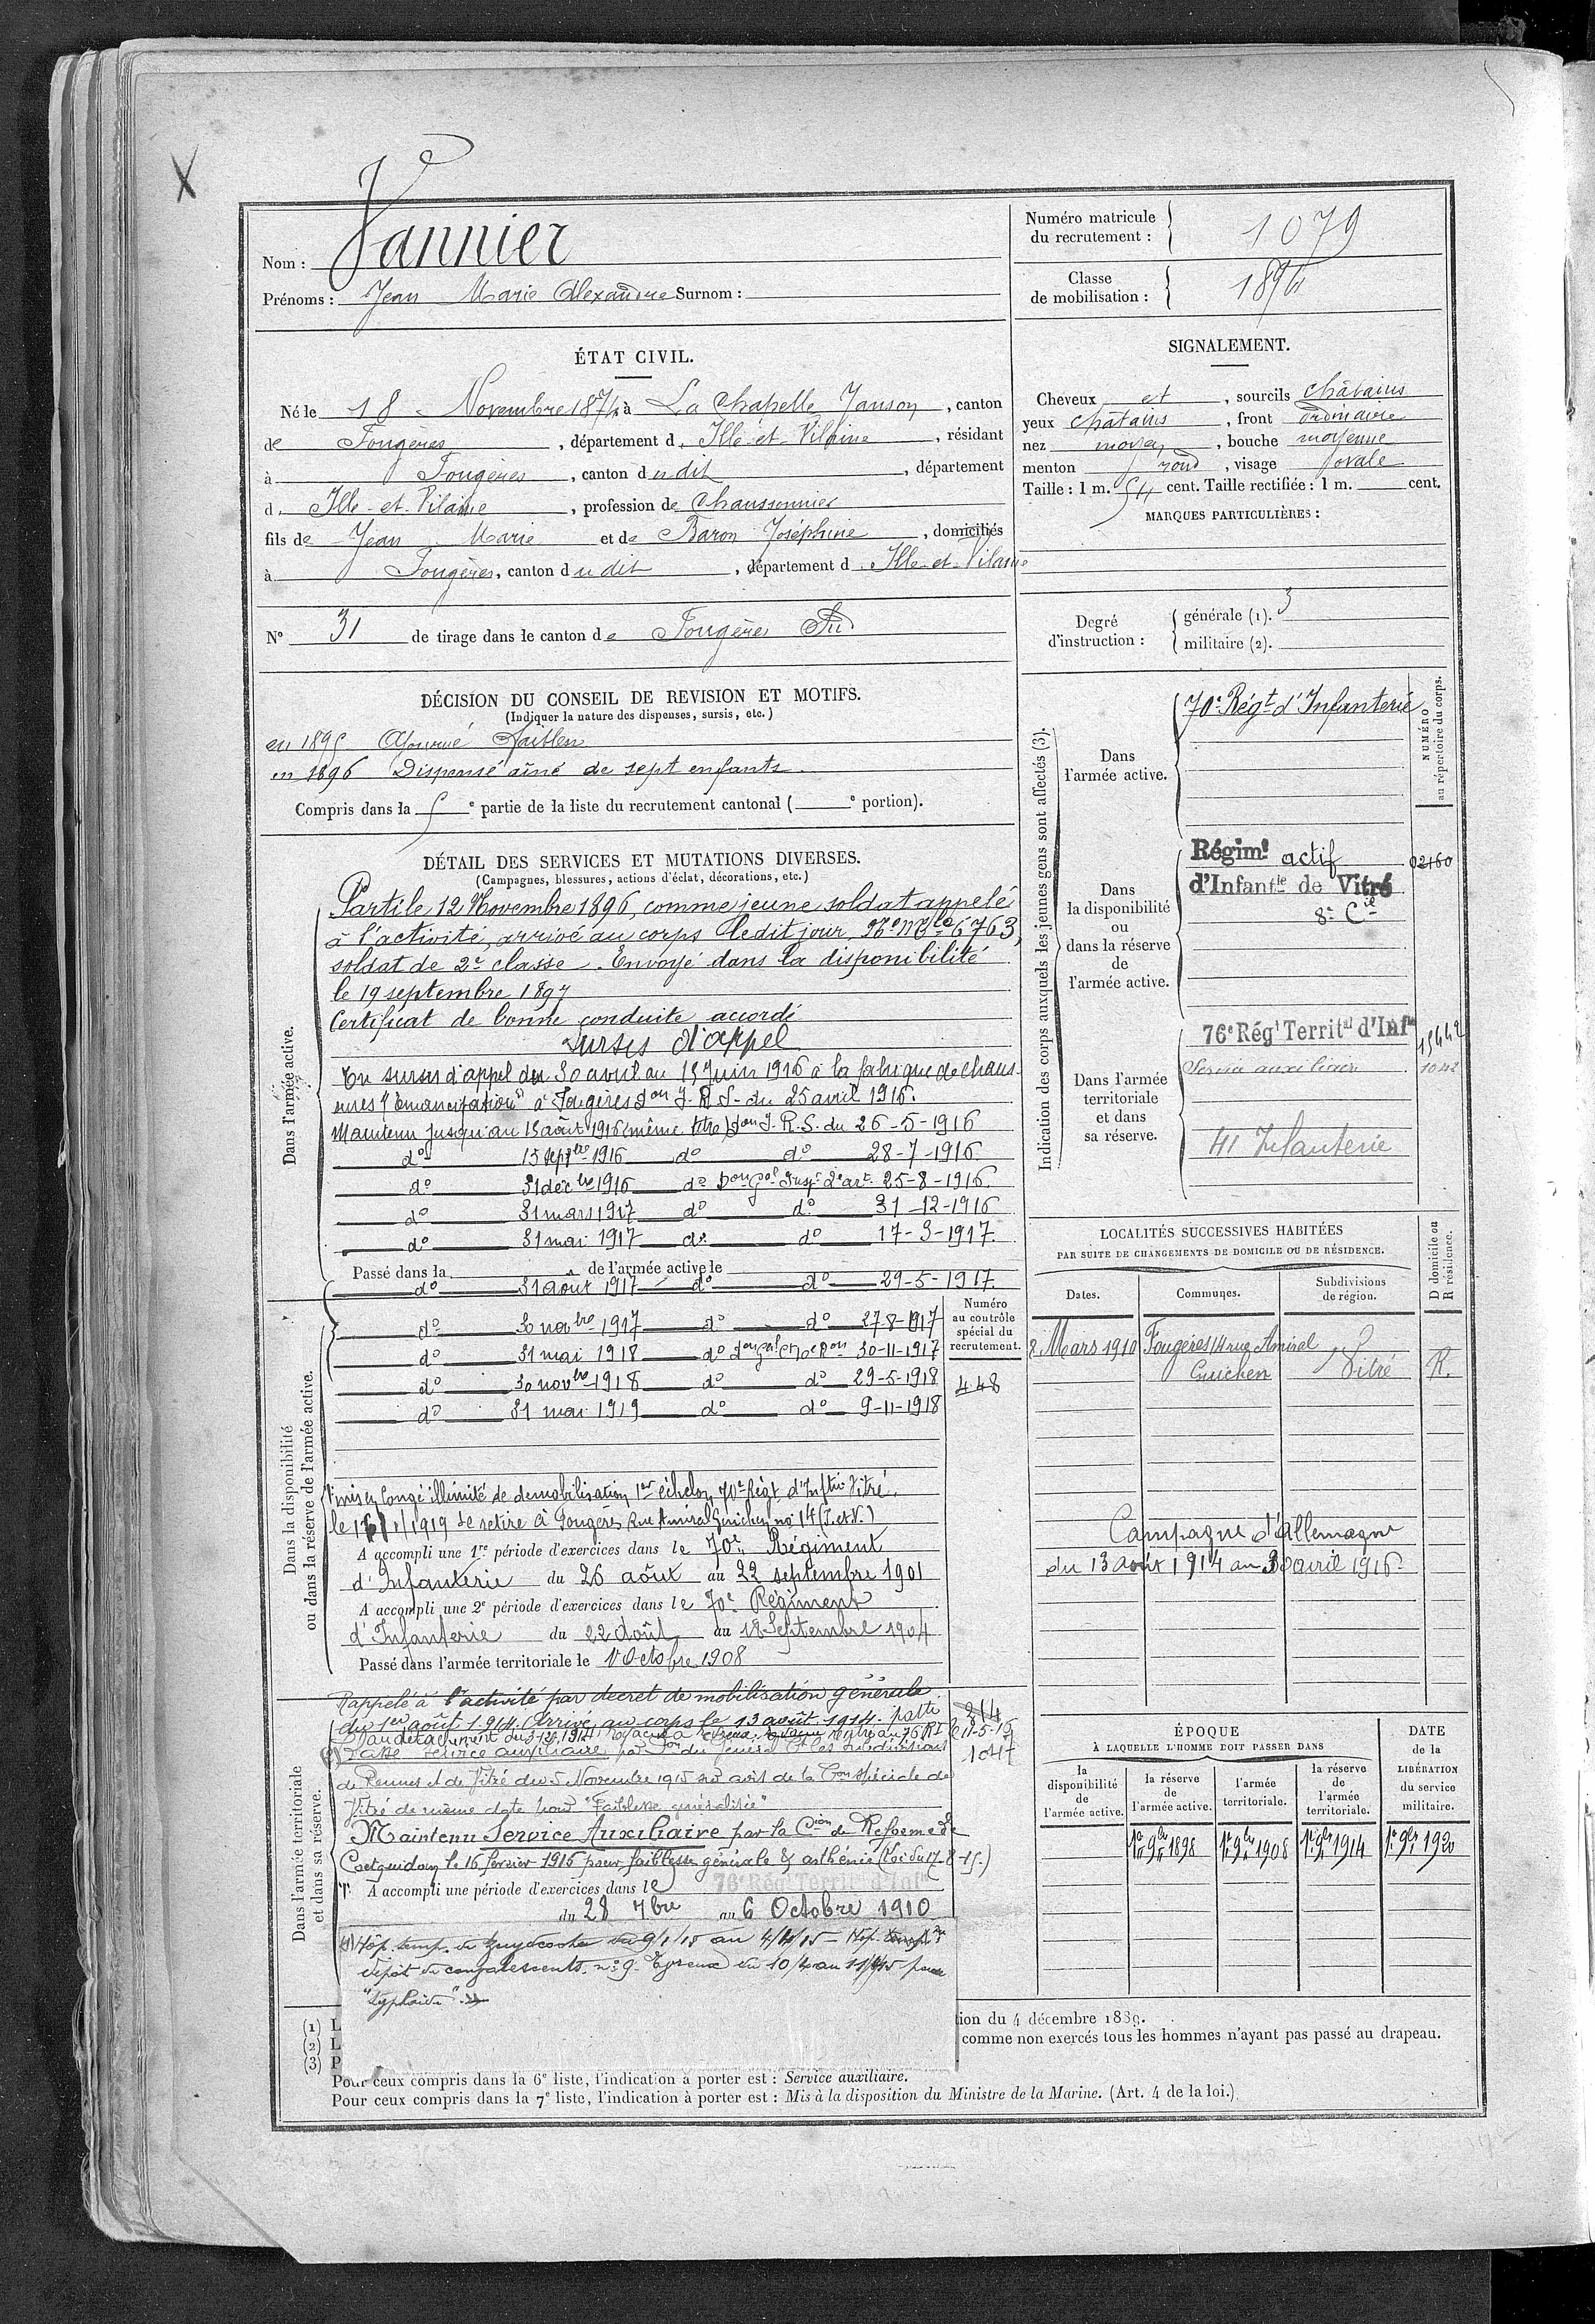 Nom : Vannier
Prénoms : Jean Marie Alexandre Surnom :
Numéro matricule
du recrutement :
1079
Classe
de mobilisation :
1894
ÉTAT CIVIL.
Né le 18 Novembre 1874 à La Chapelle Janson, canton
de Fougères, département d. Ille-et-Vilaine, résidant
à Fougères, canton du dit, département
d. Ille-et-Vilaine, profession de Chaussonnier
fils de Jean Marie et de Baron Joséphine, domiciliés
à Fougères, canton du dit, département d. Ille-et-Vilaine
N° 31 de tirage dans le canton de Fougères Sud
SIGNALEMENT.
Cheveux et, sourcils châtains
yeux châtains, front ordinaire
nez moyen, bouche moyenne
menton rond, visage ovale
Taille : 1 m. 54 cent. Taille rectifiée : 1 m. cent.
MARQUES PARTICULIÈRES :
Degré
d'instruction :
générale (1). 3
militaire (2).
DÉCISION DU CONSEIL DE REVISION ET MOTIFS.
(Indiquer la nature des dispenses, sursis, etc.)
en 1895 Ajourné faiblesse
en 1896 Dispensé aîné de sept enfants
Compris dans la 5e partie de la liste du recrutement cantonal ( e portion).
DÉTAIL DES SERVICES ET MUTATIONS DIVERSES.
(Campagnes, blessures, actions d'éclat, décorations, etc.)
Dans l'armée active.
Parti le 12 Novembre 1896, comme jeune soldat appelé
à l'activité, arrivé au corps ledit jour, No Mle 6763,
soldat de 2e classe. Envoyé dans la disponibilité
le 19 septembre 1897
Certificat de bonne conduite accordé
Sursis d'appel
En sursis d'appel du 30 avril au 15 Juin 1916 à la fabrique de chaus-
sures "l'émancipation" à Fougères Don J. R. S. du 25 avril 1916.
Maintenu jusqu'au 15 août 1916 (même titre) Don J. R. S. du 26-5-1916
do 15 septbre 1916 do do 28-7-1916
do 31 décbre 1916 do Don Gal Insp. d'art. 25-8-1916
do 31 mars 1917 do do 31-12-1916
do 31 mai 1917 do do 17-3-1917
Passé dans la de l'armée active le
do 31 août 1917 do do 29-5-1917
Dans la disponibilité
ou dans la réserve de l'armée active.
do 30 novbre 1917 do do 27-8-1917
do 31 mai 1918 do 30-11-1917
do 30 novbre 1918 do do 29-5-1918
do 31 mai 1919 do do 9-11-1918
Numéro
au contrôle
spécial du
recrutement.
448
mis en Congé illimité de démobilisation 1er échelon, 70e Régt d'Inftrie Vitré,
1/1919 se retire à Fougères Rue Amiral Guichen no 14 (I. et V.)
A accompli une 1re période d'exercices dans le 70e Régiment
d'Infanterie du 26 août au 22 septembre 1901
A accompli une 2e période d'exercices dans le 70e Régiment
d'Infanterie du 22 Août au 18 Septembre 1904
Passé dans l'armée territoriale le 1 Octobre 1908
Dans l'armée territoriale
et dans sa réserve.
Rappelé à l'activité par décret de mobilisation générale
du 1er août 1914. Arrivé au corps le 13 août 1914.
Passé service auxiliaire par Don du Général Ct les subdivisions
de Rennes et de Vitré du 5 Novembre 1915 sur avis de la Con spéciale de
Vitré de même date pour "Faiblesse généralisée"
Maintenu Service Auxiliaire par la Cion de Réforme de
Coetquidan le 16 février 1916 pour faiblesse générale & asthénie (Loi du 17-8-15.)
A accompli une période d'exercices dans le 76e Rég Territ d'Inf
du 28 7bre au 6 Octobre 1910
214
1047
Hôp. temp. de Zuydcoote du 9/1/15 au 4/4/15 - Hôp.
dépôt de convalescents no 9. Evreux du 10/4 au
"typhoïde".
Indication des corps auxquels les jeunes gens sont affectés (3).
Dans
l'armée active.
70e Régt d'Infanterie
NUMÉRO
au répertoire du corps.
Dans
la disponibilité
ou
dans la réserve
de
l'armée active.
Régimt actif
d'Infantie de Vitré
8e Cie
02160
Dans l'armée
territoriale
et dans
sa réserve.
76e Régt Territal d'Infie
Service auxiliaire
41 Infanterie
LOCALITÉS SUCCESSIVES HABITÉES
PAR SUITE DE CHANGEMENTS DE DOMICILE OU DE RÉSIDENCE.
Dates.
Communes.
Subdivisions
de région.
D domicile ou
R résidence.
8 Mars 1910 Fougères 14 rue Amiral
Guichen Vitré R.
Campagne d'Allemagne
du 13 août 1914 au 30 avril 1916
ÉPOQUE
À LAQUELLE L'HOMME DOIT PASSER DANS
la
disponibilité
de
l'armée active.
la réserve
de
l'armée active.
l'armée
territoriale.
la réserve
de
l'armée
territoriale.
DATE
de la
LIBÉRATION
du service
militaire.
1er 9bre 1898 1er 9bre 1908 1er 9bre 1914 1er 9bre 1920
(1) L
tion du 4 décembre 1889.
(2) L
comme non exercés tous les hommes n'ayant pas passé au drapeau.
(3) P
Pour ceux compris dans la 6e liste, l'indication à porter est : Service auxiliaire.
Pour ceux compris dans la 7e liste, l'indication à porter est : Mis à la disposition du Ministre de la Marine. (Art. 4 de la loi.)